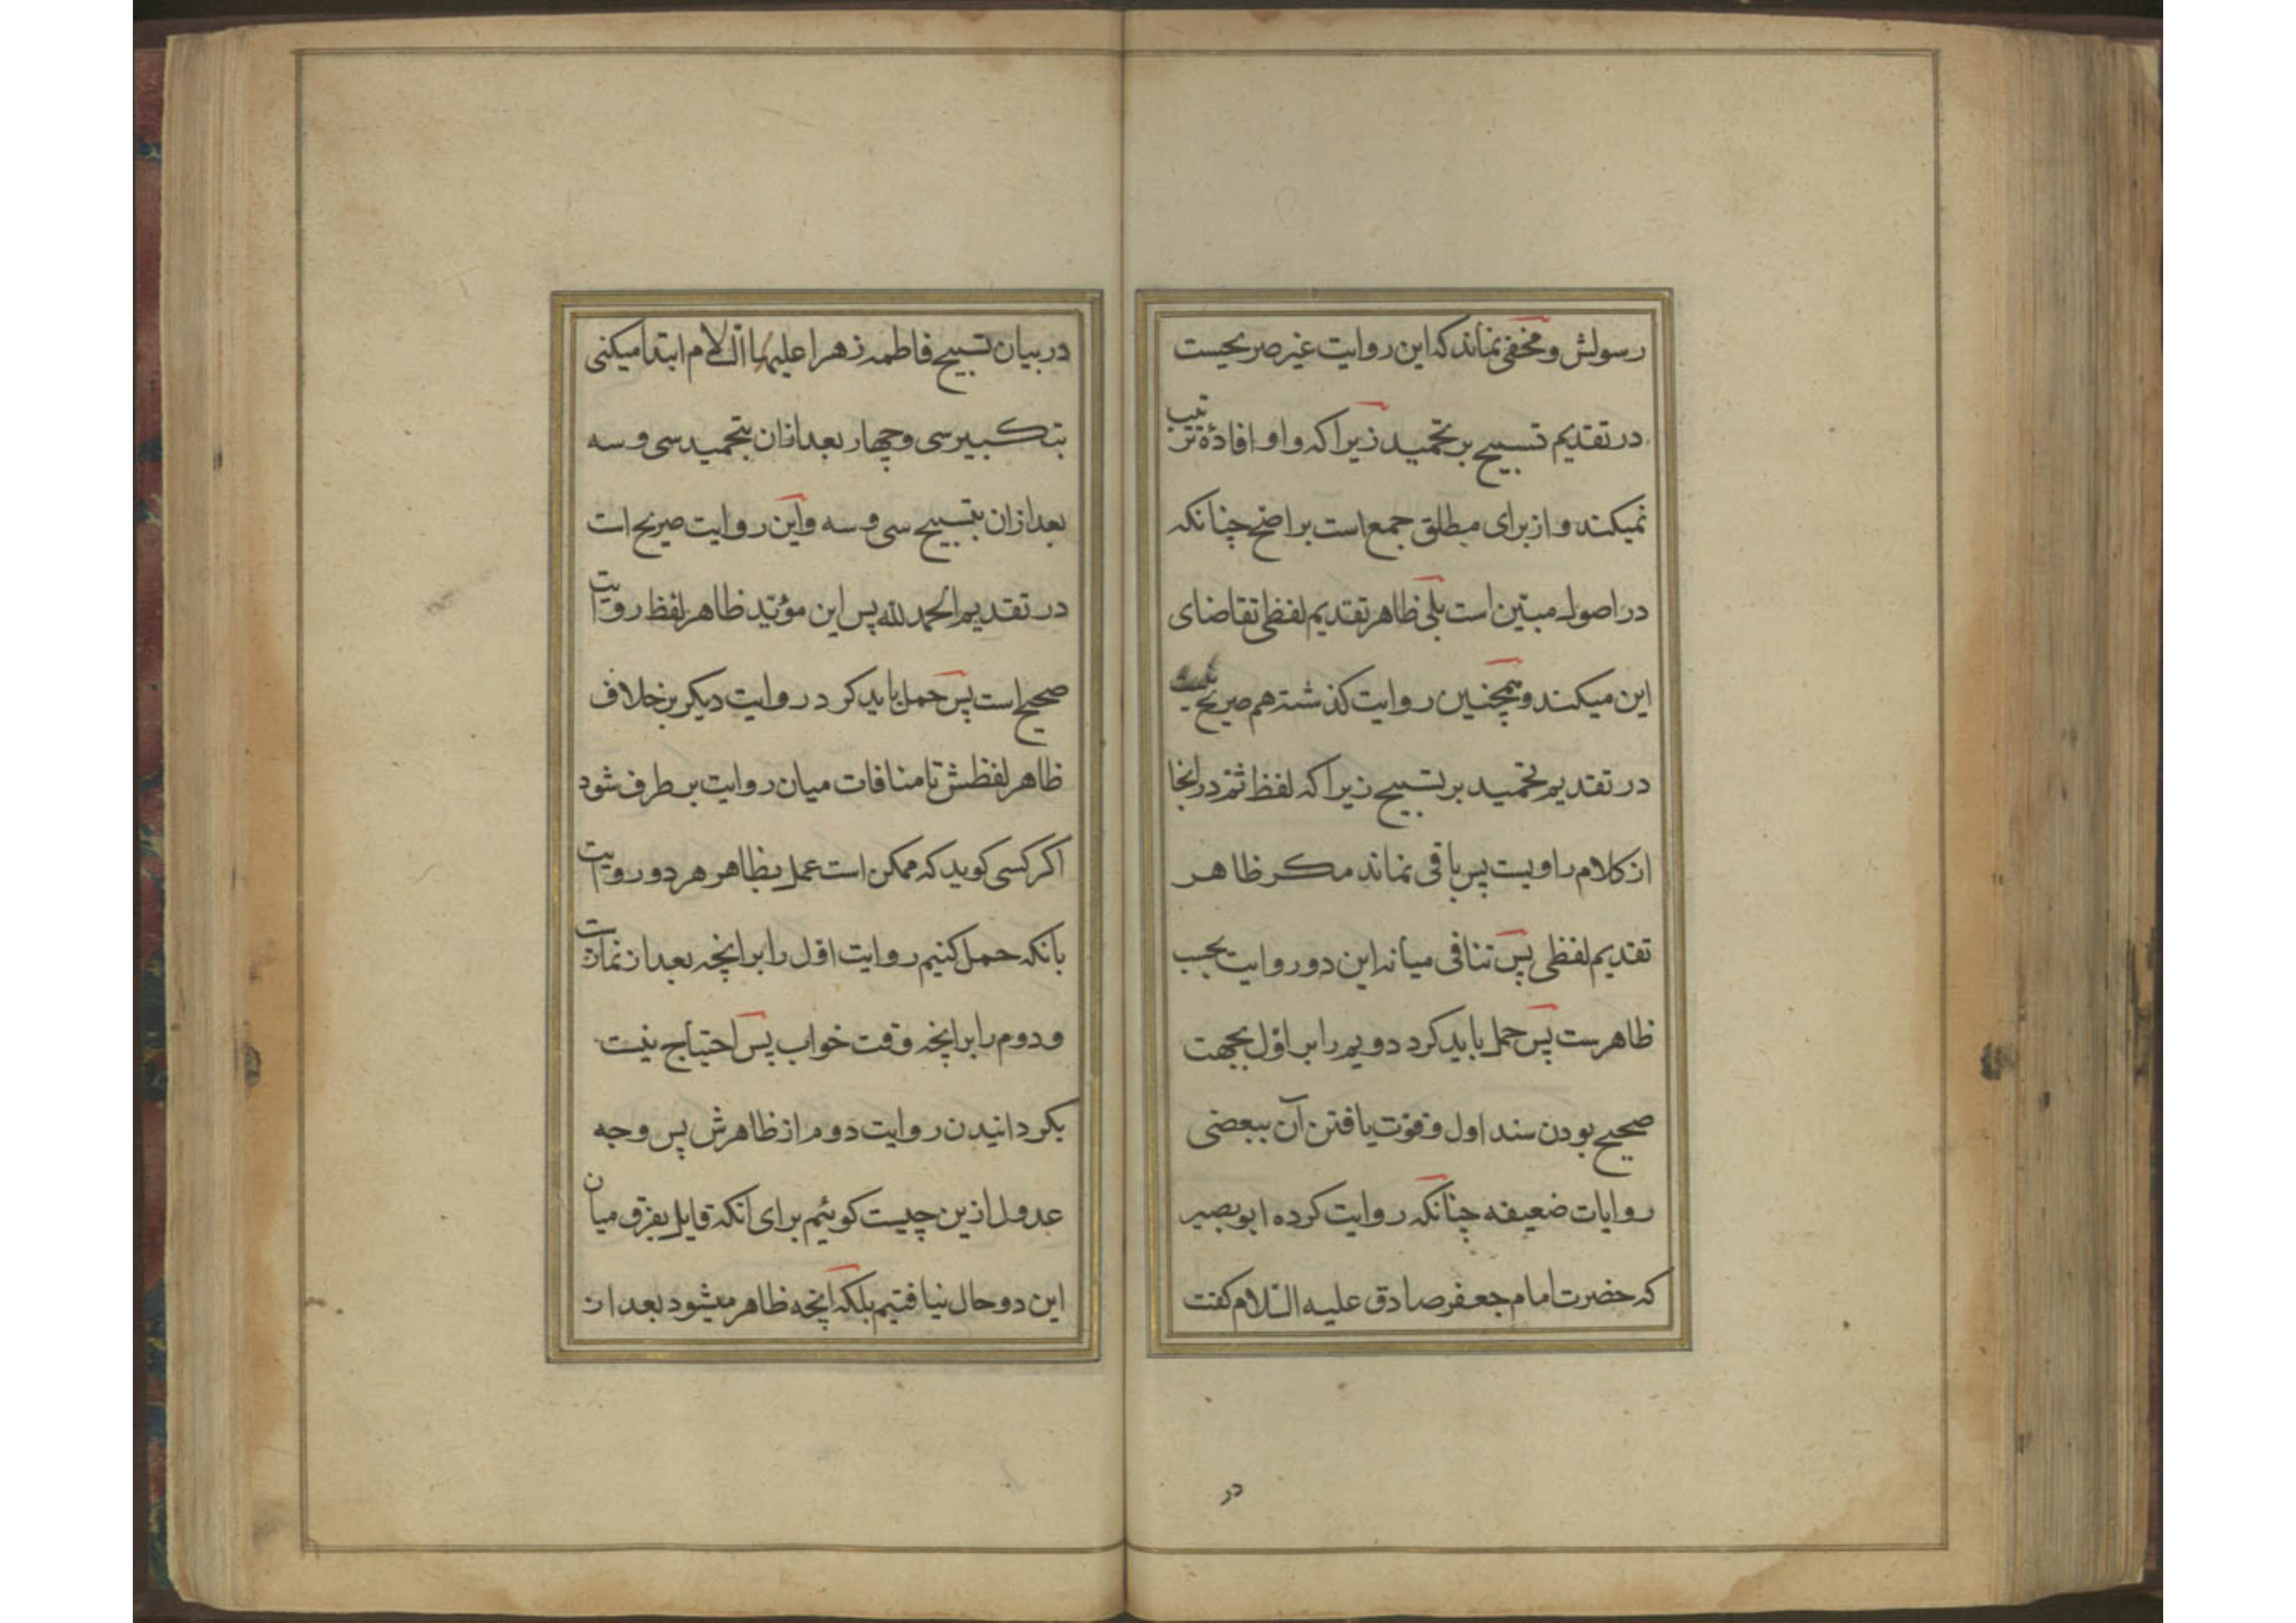 رسولش و مخفی نماند که این روایت غیر صریحست
در تقدیم تسبیح بر تحمید زیرا که واو افادهٔ ترتیب
نمیکند و از برای مطلق جمع است بر اصح چنانکه
در اصول مبیّن است بلی ظاهر تقدیم لفظی تقاضای
این میکند و همچنین روایت کذشته هم صریح نیست
در تقدیم تحمید بر تسبیح زیرا که لفظ ثمّ در اینجا
از کلام راویست پس باقی نماند مکر ظاهر
تقدیم لفظی پس تنافی میانه این دو روایت بحسب
ظاهرست پس حمل باید کرد دویم را بر اوّل بجهت
صحیح بودن سند اول و قوّت یافتن آن ببعضی
روایات ضعیفه چنانکه روایت کرده ابو بصیر
که حضرت امام جعفر صادق علیه السّلام کفت
در
در بیان تسبیح فاطمه زهرا علیها السّلام ابتدا میکنی
بتکبیر سی و چهار بعد ازان بتحمید سی و سه
بعد ازان بتسبیح سی و سه و این روایت صریح است
در تقدیم الحمد لله پس این مؤیّد ظاهر لفظ روایت
صحیح است پس حمل باید کرد روایت دیکر بر خلاف
ظاهر لفظش تا منافات میان روایت بر طرف شود
اکر کسی کوید که ممکن است عمل بظاهر هر دو روایت
بانکه حمل کنیم روایت اوّل را بر انچه بعد از نمازست
و دوم را بر انچه وقت خواب پس احتیاج نیست
بکردانیدن روایت دوم از ظاهرش پس وجه
عدول ازین چیست کوئیم برای انکه قایل بفرق میان
این دو حال نیافتیم بلکه آنچه ظاهر میشود بعد از